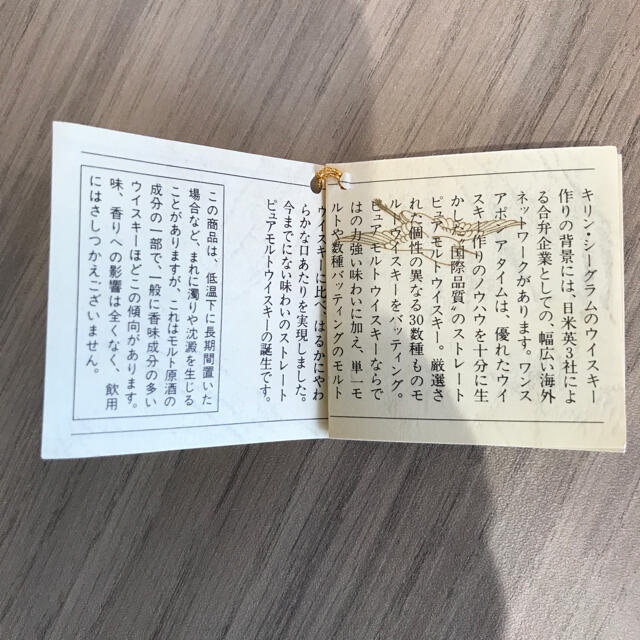 キリン・シーグラムのウイスキー
作りの背景には、日米英3社によ
る合弁企業としての、幅広い海外
ネットワークがあります。ワンス
アポン ア タイムは、優れたウイ
スキー作りのノウハウを十分に生
かした“国際品質”のストレート
ピュアモルトウイスキー。厳選さ
れた個性の異なる30数種ものモ
ルトウイスキーをバッティング。
ピュアモルト ウイスキーならで
はの力強い味わいに加え、単一モ
ルトや数種バッティングのモルト
ウイスキーに比べ、はるかにやわ
らかな口あたりを実現しました。
今までにない味わいのストレート
ピュアモルトウイスキーの誕生です。
この商品は、低温下に長期間置いた
場合など、まれに濁りや沈澱を生じる
ことがありますが、これはモルト原酒の
成分の一部で、一般に香味成分の多い
ウイスキーほどこの傾向があります。
味、香りへの影響は全くなく、飲用
にはさしつかえございません。